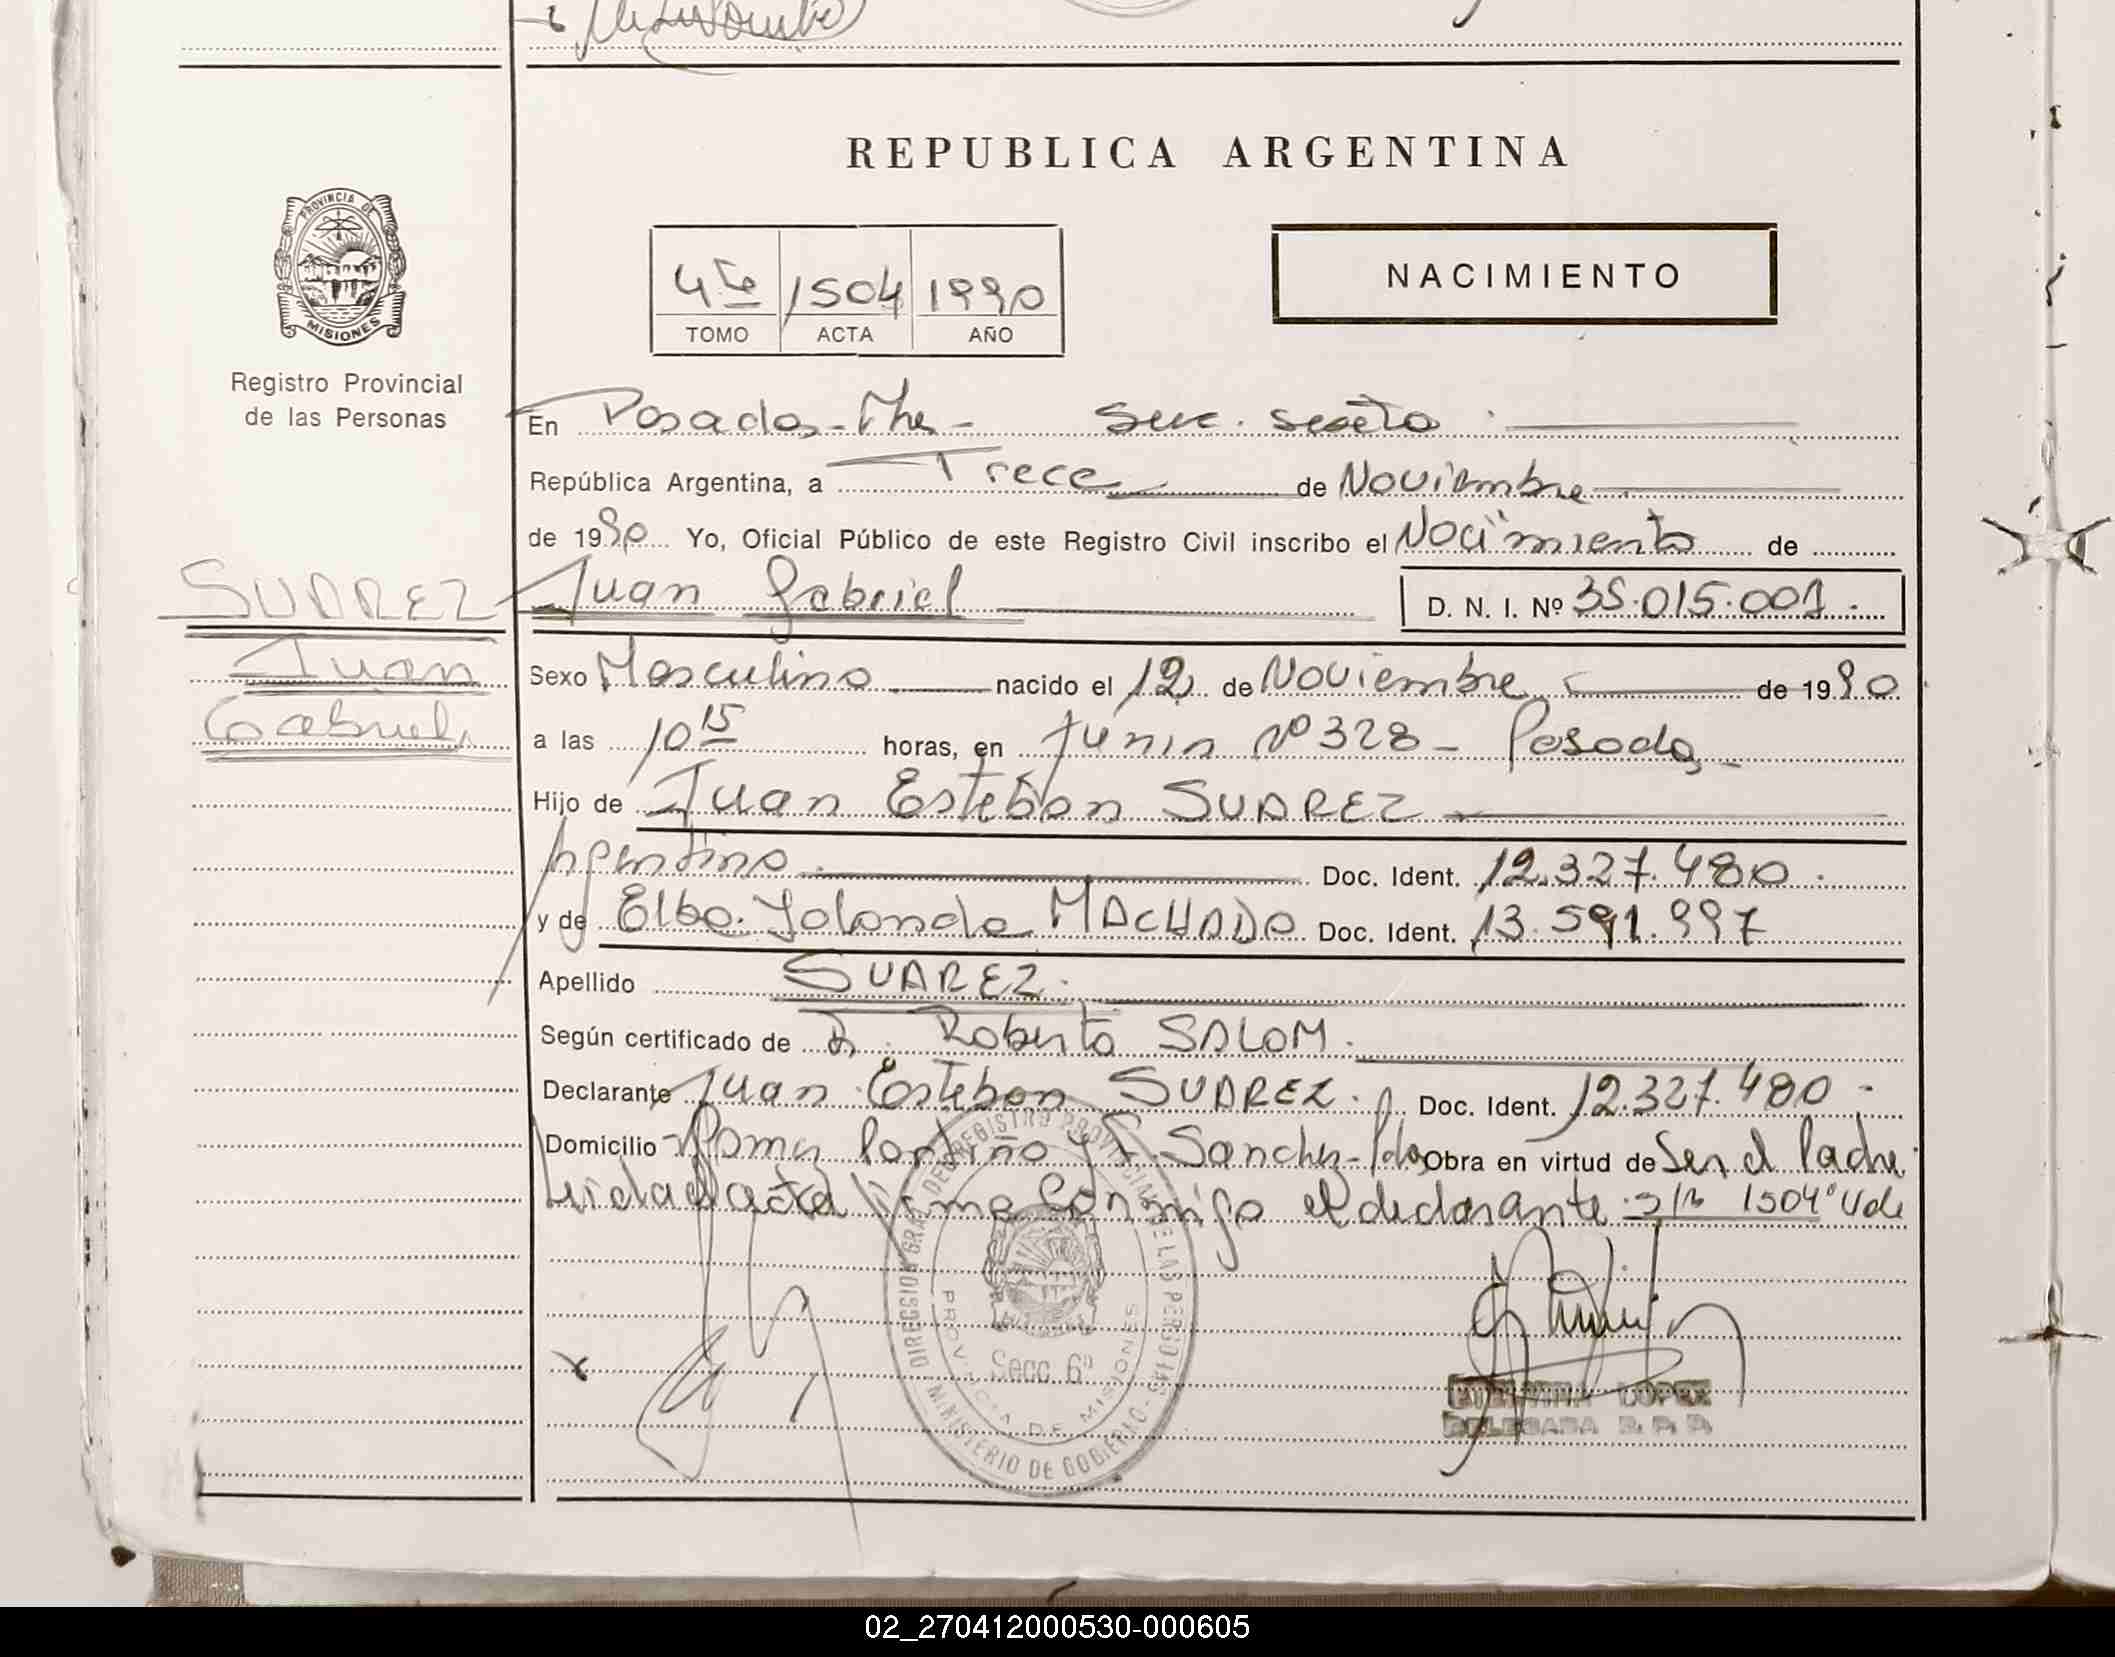 REPUBLICA ARGENTINA
PROVINCIA DE
MISIONES
Registro Provincial
de las Personas
4to 1504 1990
TOMO ACTA AÑO
NACIMIENTO
En Posadas - Mnes - Secc. sexta
República Argentina, a Trece de Noviembre
de 1990 Yo, Oficial Público de este Registro Civil inscribo el Nacimiento de
SUAREZ
Juan
Gabriel
Juan Gabriel D. N. I. Nº 35.015.001.
Sexo Masculino nacido el 12 de Noviembre de 1990
a las 10 15 horas, en Junin Nº 328 - Posadas -
Hijo de Juan Esteban SUAREZ
Argentino. Doc. Ident. 12.327.480.
y de Elba Yolanda MACHADO Doc. Ident. 13.591.997
Apellido SUAREZ.
Según certificado de Dr. Roberto SALOM.
Declarante Juan Esteban SUAREZ. Doc. Ident. 12.327.480 -
Domicilio Portiño y F. Sanchez - Pdas Obra en virtud de Ser el Padre
Leida el acta firma conmigo el declarante. s/b 1504 Vale
DIRECCION GRAL. DEL REGISTRO PROVINCIAL DE LAS PERSONAS
PROVINCIA DE MISIONES
Secc. 6ª
MINISTERIO DE GOBIERNO
LOPEZ
DELEGADA R. P. P.
02_270412000530-000605